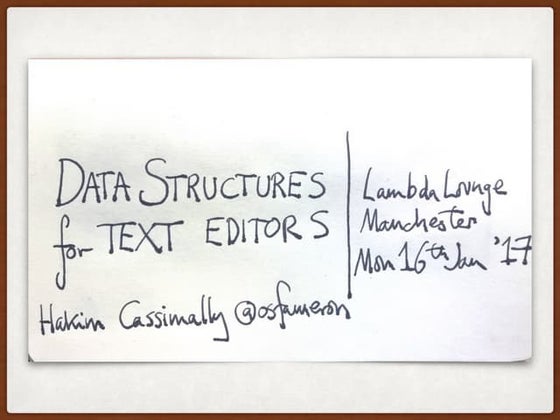 DATA STRUCTURES
for TEXT EDITORS
Hakim Cassimally @osfameron
Lambda Lounge
Manchester
Mon 16th Jan '17